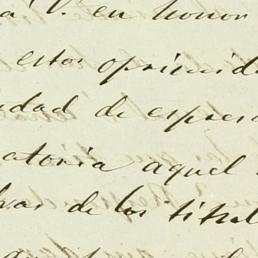 á V. en honor
estos oprimid
dad de espres
atoria aquel
ras de los titul